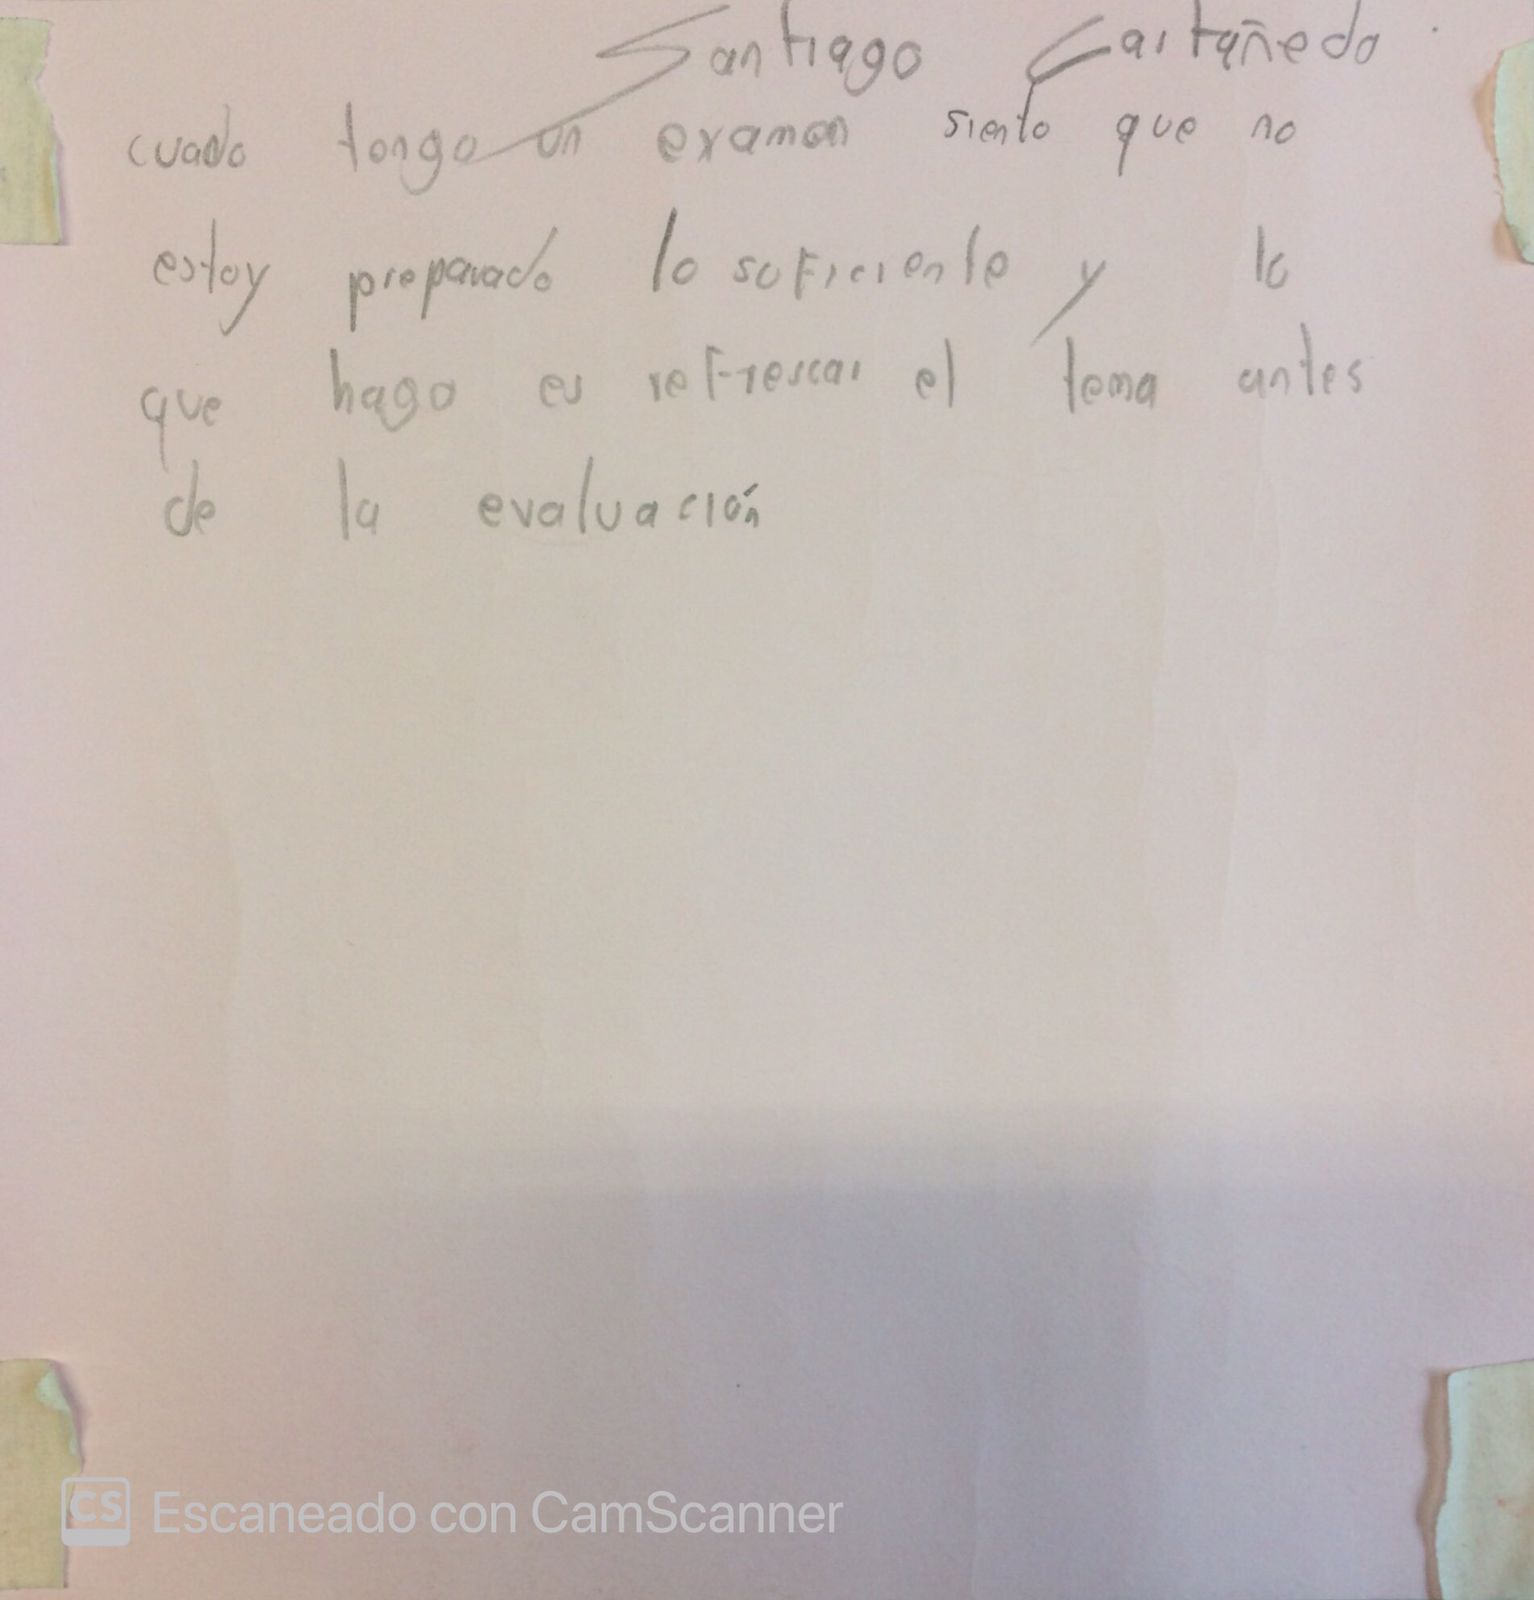 Santiago Castañedo
cuado tengo un examen siento que no
estoy preparado lo suficiente y lo
que hago es refrescar el tema antes
de la evaluación
CS Escaneado con CamScanner